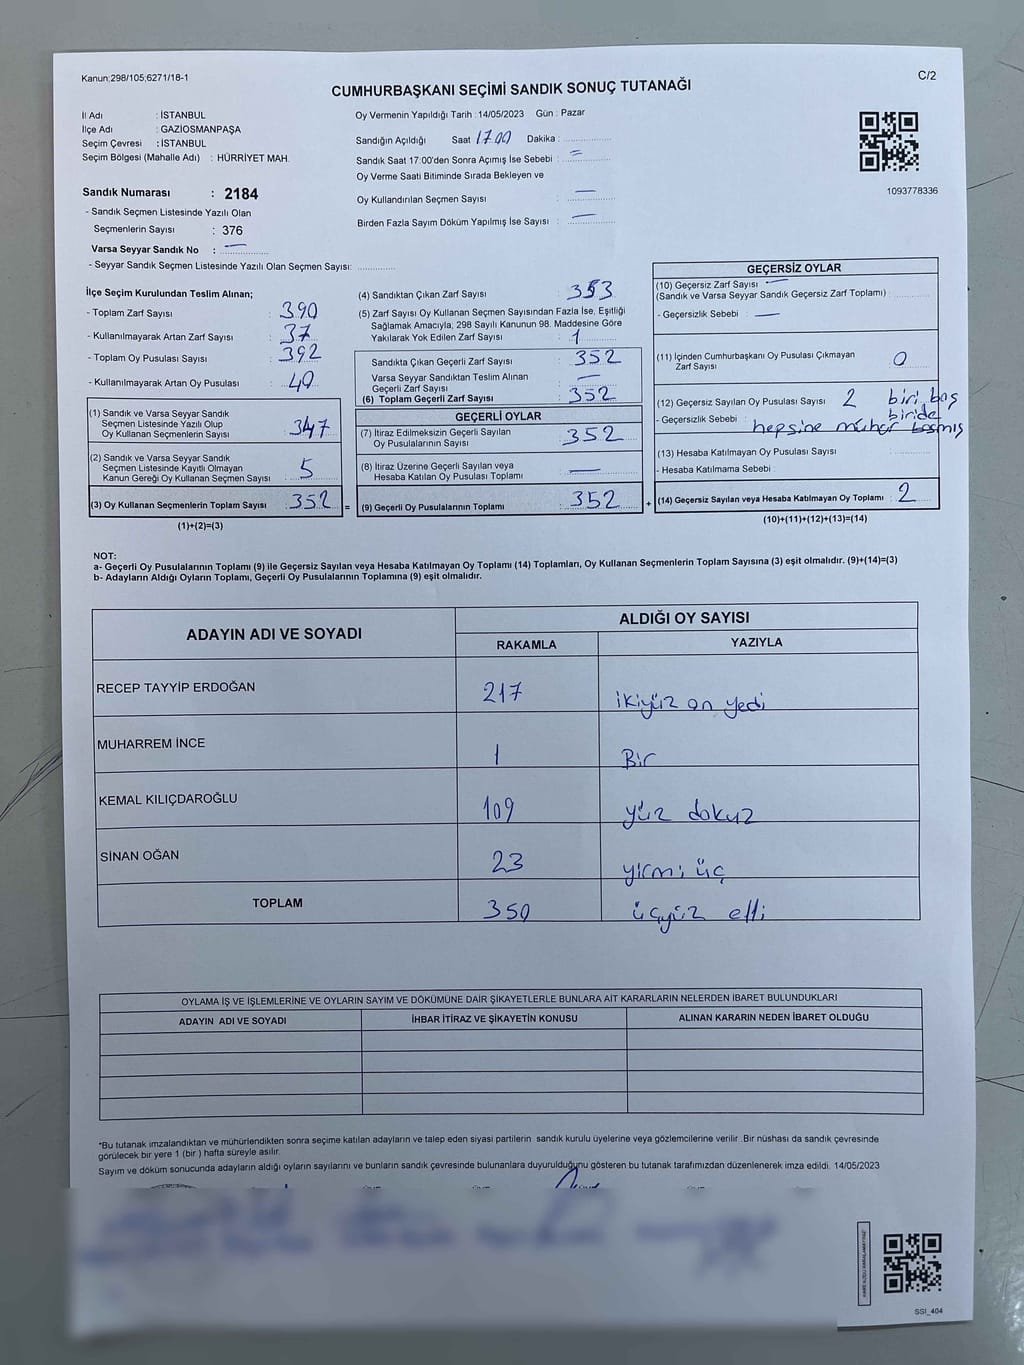 Kanun;298/105;6271/18-1
C/2
CUMHURBAŞKANI SEÇİMİ SANDIK SONUÇ TUTANAĞI
İl Adı : İSTANBUL
İlçe Adı : GAZİOSMANPAŞA
Seçim Çevresi : İSTANBUL
Seçim Bölgesi (Mahalle Adı) : HÜRRİYET MAH.
Sandık Numarası : 2184
- Sandık Seçmen Listesinde Yazılı Olan
Seçmenlerin Sayısı : 376
Varsa Seyyar Sandık No : —
- Seyyar Sandık Seçmen Listesinde Yazılı Olan Seçmen Sayısı:
Oy Vermenin Yapıldığı Tarih : 14/05/2023 Gün : Pazar
Sandığın Açıldığı Saat 17.00 Dakika :
Sandık Saat 17:00'den Sonra Açımış İse Sebebi : =
Oy Verme Saati Bitiminde Sırada Bekleyen ve
Oy Kullandırılan Seçmen Sayısı : —
Birden Fazla Sayım Döküm Yapılmış İse Sayısı : —
1093778336
İlçe Seçim Kurulundan Teslim Alınan;
- Toplam Zarf Sayısı : 390
- Kullanılmayarak Artan Zarf Sayısı : 37
- Toplam Oy Pusulası Sayısı : 392
- Kullanılmayarak Artan Oy Pusulası : 40
(1) Sandık ve Varsa Seyyar Sandık
Seçmen Listesinde Yazılı Olup
Oy Kullanan Seçmenlerin Sayısı : 347
(2) Sandık ve Varsa Seyyar Sandık
Seçmen Listesinde Kayıtlı Olmayan
Kanun Gereği Oy Kullanan Seçmen Sayısı : 5
(3) Oy Kullanan Seçmenlerin Toplam Sayısı : 352 =
(1)+(2)=(3)
(4) Sandıktan Çıkan Zarf Sayısı : 353
(5) Zarf Sayısı Oy Kullanan Seçmen Sayısından Fazla İse, Eşitliği
Sağlamak Amacıyla, 298 Sayılı Kanunun 98. Maddesine Göre
Yakılarak Yok Edilen Zarf Sayısı : 1
Sandıkta Çıkan Geçerli Zarf Sayısı : 352
Varsa Seyyar Sandıktan Teslim Alınan
Geçerli Zarf Sayısı : —
(6) Toplam Geçerli Zarf Sayısı : 352
GEÇERLİ OYLAR
(7) İtiraz Edilmeksizin Geçerli Sayılan
Oy Pusulalarının Sayısı : 352
(8) İtiraz Üzerine Geçerli Sayılan veya
Hesaba Katılan Oy Pusulası Toplamı : —
(9) Geçerli Oy Pusulalarının Toplamı : 352 +
GEÇERSİZ OYLAR
(10) Geçersiz Zarf Sayısı —
(Sandık ve Varsa Seyyar Sandık Geçersiz Zarf Toplamı) :
- Geçersizlik Sebebi : —
(11) İçinden Cumhurbaşkanı Oy Pusulası Çıkmayan
Zarf Sayısı : 0
(12) Geçersiz Sayılan Oy Pusulası Sayısı : 2 biri boş
- Geçersizlik Sebebi : biride
hepsine mühür basmış
(13) Hesaba Katılmayan Oy Pusulası Sayısı :
- Hesaba Katılmama Sebebi :
(14) Geçersiz Sayılan veya Hesaba Katılmayan Oy Toplamı : 2
(10)+(11)+(12)+(13)=(14)
NOT:
a- Geçerli Oy Pusulalarının Toplamı (9) ile Geçersiz Sayılan veya Hesaba Katılmayan Oy Toplamı (14) Toplamları, Oy Kullanan Seçmenlerin Toplam Sayısına (3) eşit olmalıdır. (9)+(14)=(3)
b- Adayların Aldığı Oyların Toplamı, Geçerli Oy Pusulalarının Toplamına (9) eşit olmalıdır.
ADAYIN ADI VE SOYADI
ALDIĞI OY SAYISI
RAKAMLA YAZIYLA
RECEP TAYYİP ERDOĞAN 217 ikiyüz on yedi
MUHARREM İNCE 1 Bir
KEMAL KILIÇDAROĞLU 109 yüz dokuz
SİNAN OĞAN 23 yirmi üç
TOPLAM 350 üçyüz elli
OYLAMA İŞ VE İŞLEMLERİNE VE OYLARIN SAYIM VE DÖKÜMÜNE DAİR ŞİKAYETLERLE BUNLARA AİT KARARLARIN NELERDEN İBARET BULUNDUKLARI
ADAYIN ADI VE SOYADI İHBAR İTİRAZ VE ŞİKAYETİN KONUSU ALINAN KARARIN NEDEN İBARET OLDUĞU
*Bu tutanak imzalandıktan ve mühürlendikten sonra seçime katılan adayların ve talep eden siyasi partilerin sandık kurulu üyelerine veya gözlemcilerine verilir .Bir nüshası da sandık çevresinde
görülecek bir yere 1 (bir ) hafta süreyle asılır.
Sayım ve döküm sonucunda adayların aldığı oyların sayılarını ve bunların sandık çevresinde bulunanlara duyurulduğunu gösteren bu tutanak tarafımızdan düzenlenerek imza edildi. 14/05/2023
SSI_404